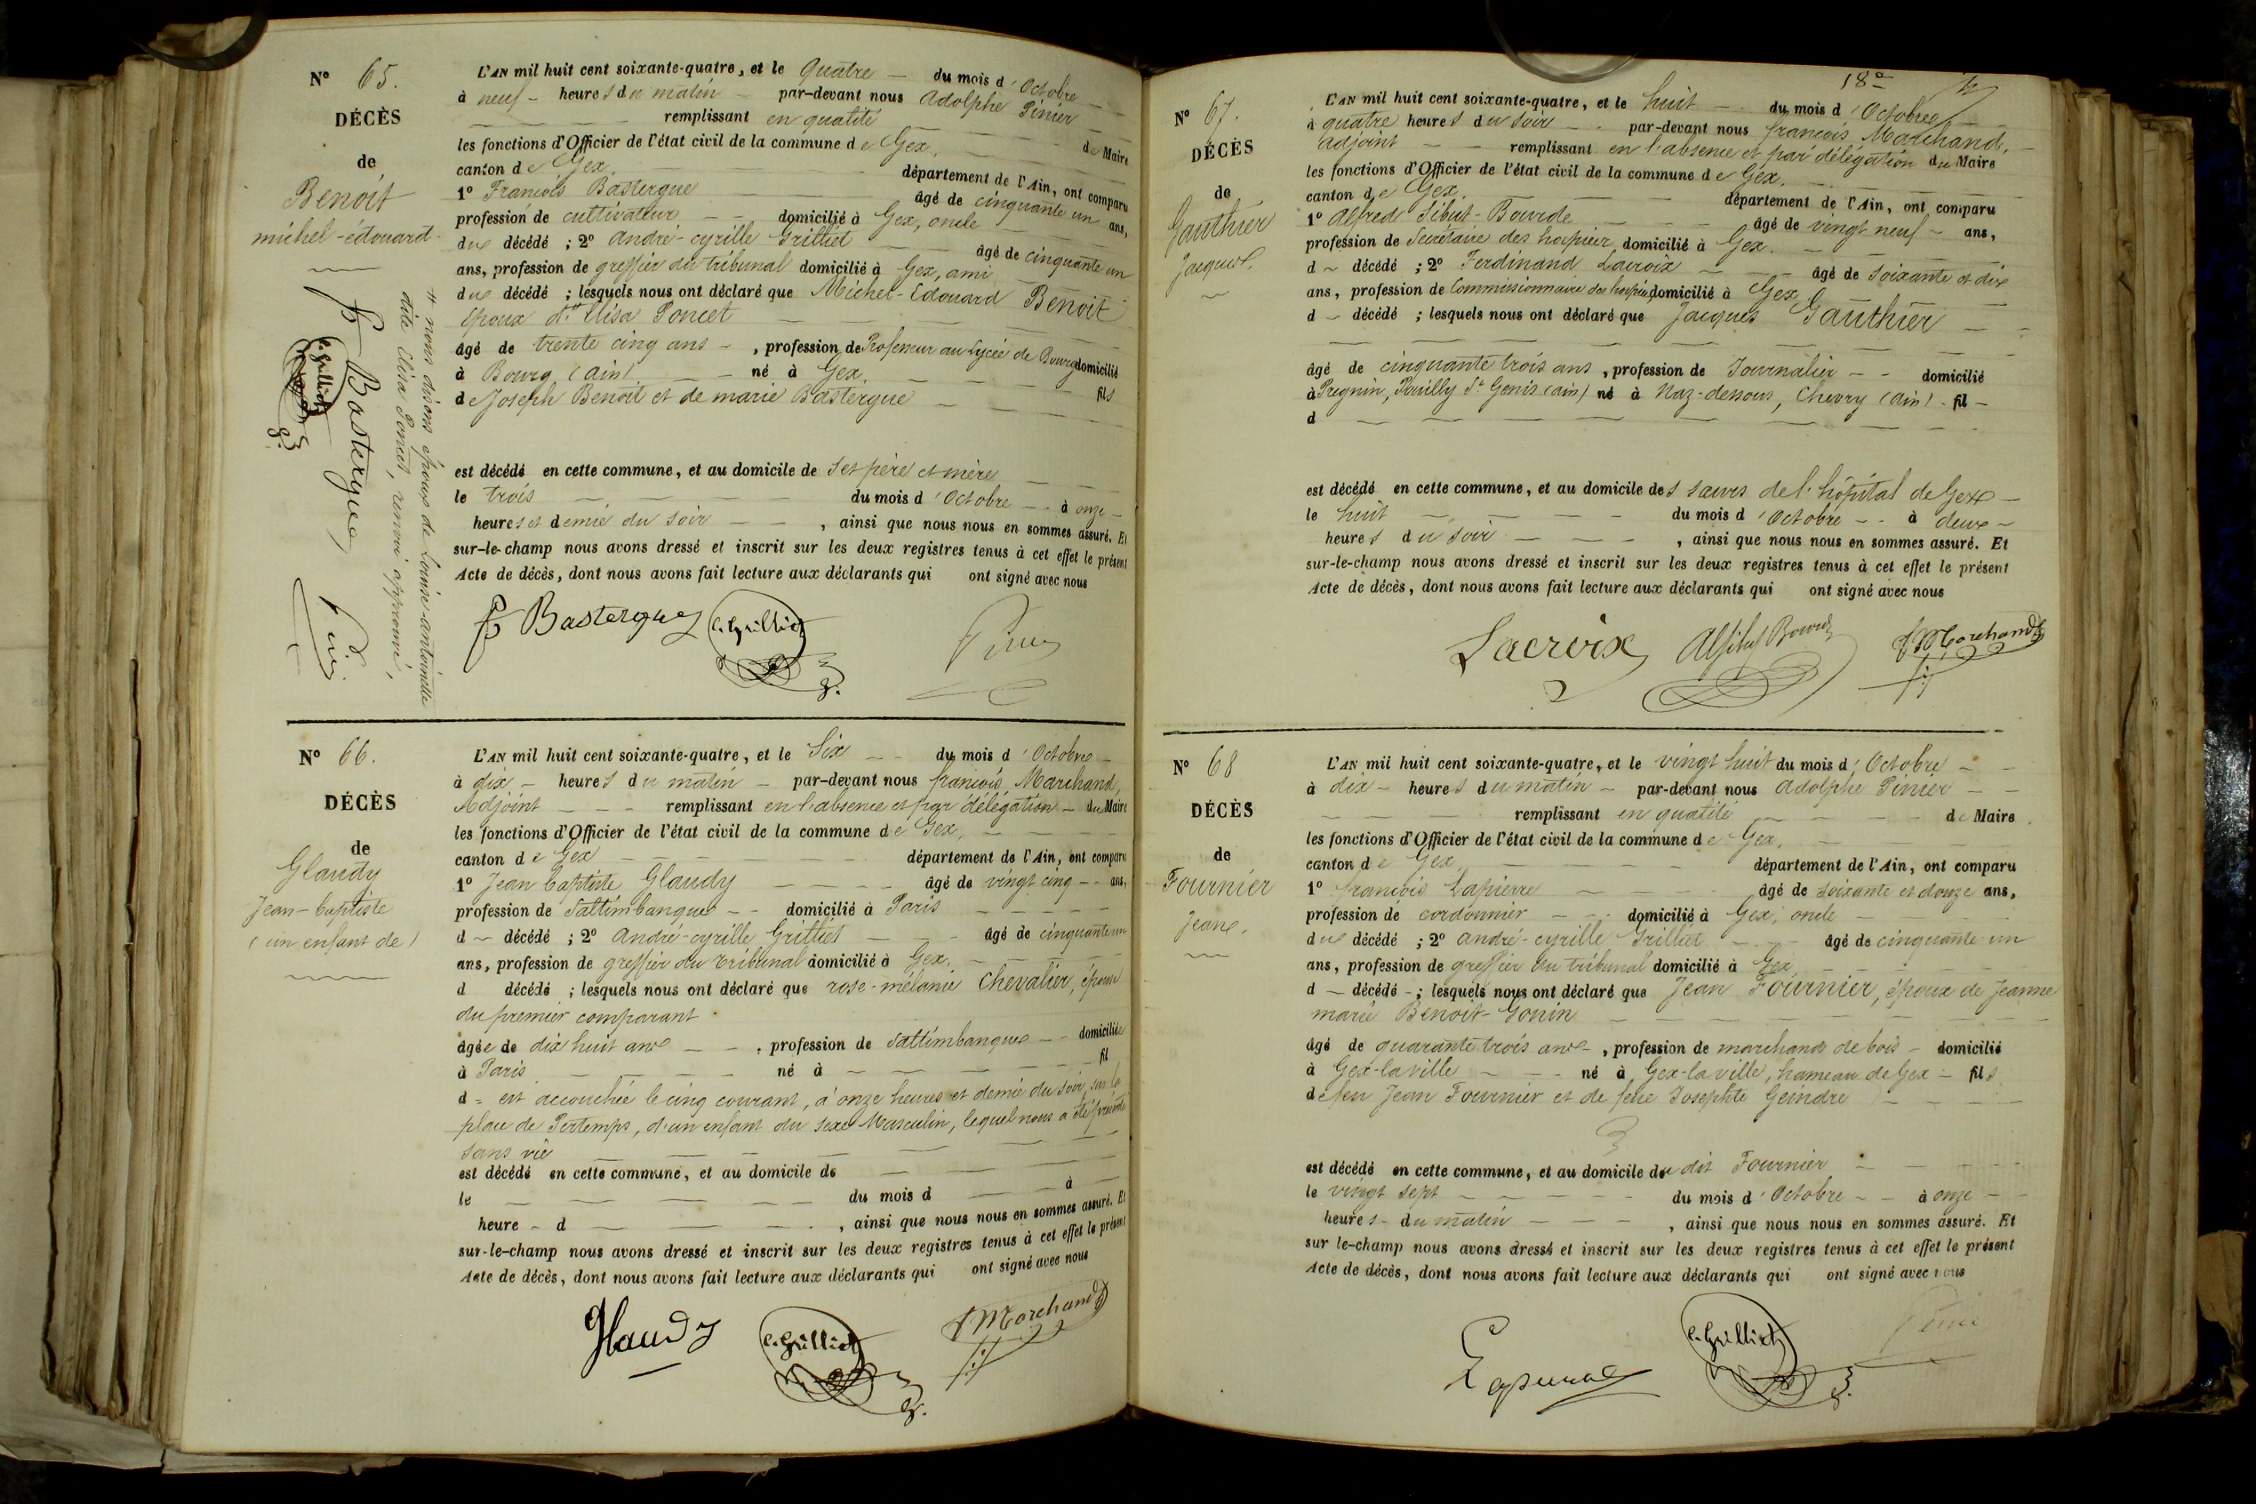 N° 65.
DÉCÈS
de
Benoit
michel-édouard
L'AN mil huit cent soixante-quatre, et le quatre du mois d'Octobre
à neuf heures du matin par-devant nous Adolphe Pinier
remplissant en qualité de Maire
les fonctions d'Officier de l'état civil de la commune de Gex.
canton de Gex département de l'Ain, ont comparu
1° François Bastergue âgé de cinquante un ans,
profession de cultivateur domicilié à Gex, oncle
du décédé ; 2° André-cyrille Grilliet âgé de cinquante un
ans, profession de greffier du tribunal domicilié à Gex, ami
du décédé ; lesquels nous ont déclaré que Michel-Edouard Benoit
époux d.lle Elisa Poncet
âgé de trente cinq ans, profession de Professeur au Lycée de Bourg domicilié
à Bourg (ain) né à Gex.
de Joseph Benoit et de marie Bastergue fils
est décédé en cette commune, et au domicile de ses père et mère
le trois du mois d'Octobre à onze
heures et demie du soir, ainsi que nous nous en sommes assuré. Et
sur-le-champ nous avons dressé et inscrit sur les deux registres tenus à cet effet le présent
Acte de décès, dont nous avons fait lecture aux déclarants qui ont signé avec nous
F Bastergue C. Grilliet Pinier
nous disons époux de Louise-antoinette
dite Elisa Poncet, renvoi approuvé,
F Bastergue
C. Grilliet
N° 66.
DÉCÈS
de
Glaudy
Jean-baptiste
(un enfant de)
L'AN mil huit cent soixante-quatre, et le Six du mois d'Octobre
à dix heures du matin par-devant nous françois Marchand,
Adjoint remplissant en l'absence et par délégation du Maire
les fonctions d'Officier de l'état civil de la commune de Gex.
canton de Gex département de l'Ain, ont comparu
1° Jean baptiste Glaudy âgé de vingt cinq ans,
profession de Saltimbanque domicilié à Paris
d décédé ; 2° André-cyrille Grilliet âgé de cinquante un
ans, profession de greffier du tribunal domicilié à Gex.
d décédé ; lesquels nous ont déclaré que rose-mélanie Chevalier, épouse
du premier comparant
âgée de dix huit ans, profession de Saltimbanque domiciliée
à Paris né à fil
d est accouchée le cinq courant, à onze heures et demie du soir, sur la
place de Pertemps, d'un enfant du sexe Masculin, lequel nous a été présenté
sans vie
est décédé en cette commune, et au domicile de
le du mois d à
heure d, ainsi que nous nous en sommes assuré. Et
sur-le-champ nous avons dressé et inscrit sur les deux registres tenus à cet effet le présent
Acte de décès, dont nous avons fait lecture aux déclarants qui ont signé avec nous
Glaudy C. Grilliet f Marchand
18e
N° 67.
DÉCÈS
de
Gauthier
Jacques.
L'AN mil huit cent soixante-quatre, et le huit du mois d'Octobre
à quatre heures du soir par-devant nous françois Marchand,
adjoint remplissant en l'absence et par délégation du Maire
les fonctions d'Officier de l'état civil de la commune de Gex.
canton de Gex département de l'Ain, ont comparu
1° Alfred Sibut-Bourde âgé de vingt neuf ans,
profession de Secrétaire des hospices domicilié à Gex.
d décédé ; 2° Ferdinand Lacroix âgé de soixante et dix
ans, profession de Commissionnaire des hospices domicilié à Gex
d décédé ; lesquels nous ont déclaré que Jacques Gauthier
âgé de cinquante trois ans, profession de Journalier domicilié
à Pregnin, Pouilly St Genis (ain) né à Naz-dessous, Chevry (ain). fil
d
est décédé en cette commune, et au domicile des sœurs de l'hôpital de Gex
le huit du mois d'Octobre à deux
heures du soir, ainsi que nous nous en sommes assuré. Et
sur-le-champ nous avons dressé et inscrit sur les deux registres tenus à cet effet le présent
Acte de décès, dont nous avons fait lecture aux déclarants qui ont signé avec nous
Lacroix A Sibut Bourde f Marchand
N° 68
DÉCÈS
de
Fournier
Jean.
L'AN mil huit cent soixante-quatre, et le vingt huit du mois d'Octobre
à dix heures du matin par-devant nous Adolphe Pinier
remplissant en qualité de Maire
les fonctions d'Officier de l'état civil de la commune de Gex.
canton de Gex département de l'Ain, ont comparu
1° françois Lapierre âgé de soixante et douze ans,
profession de cordonnier domicilié à Gex, oncle
du décédé ; 2° André-cyrille Grilliet âgé de cinquante un
ans, profession de greffier du tribunal domicilié à Gex
d décédé ; lesquels nous ont déclaré que Jean Fournier, époux de Jeanne
marie Benoit-Gonin
âgé de quarante trois ans, profession de marchand de bois domicilié
à Gex-la ville né à Gex-la ville, hameau de Gex fils
de feu Jean Fournier et de feue Josephte Geindre
est décédé en cette commune, et au domicile du dit Fournier
le vingt sept du mois d'Octobre à onze
heures du matin, ainsi que nous nous en sommes assuré. Et
sur le-champ nous avons dressé et inscrit sur les deux registres tenus à cet effet le présent
Acte de décès, dont nous avons fait lecture aux déclarants qui ont signé avec nous
Lapierre C. Grilliet Pinier